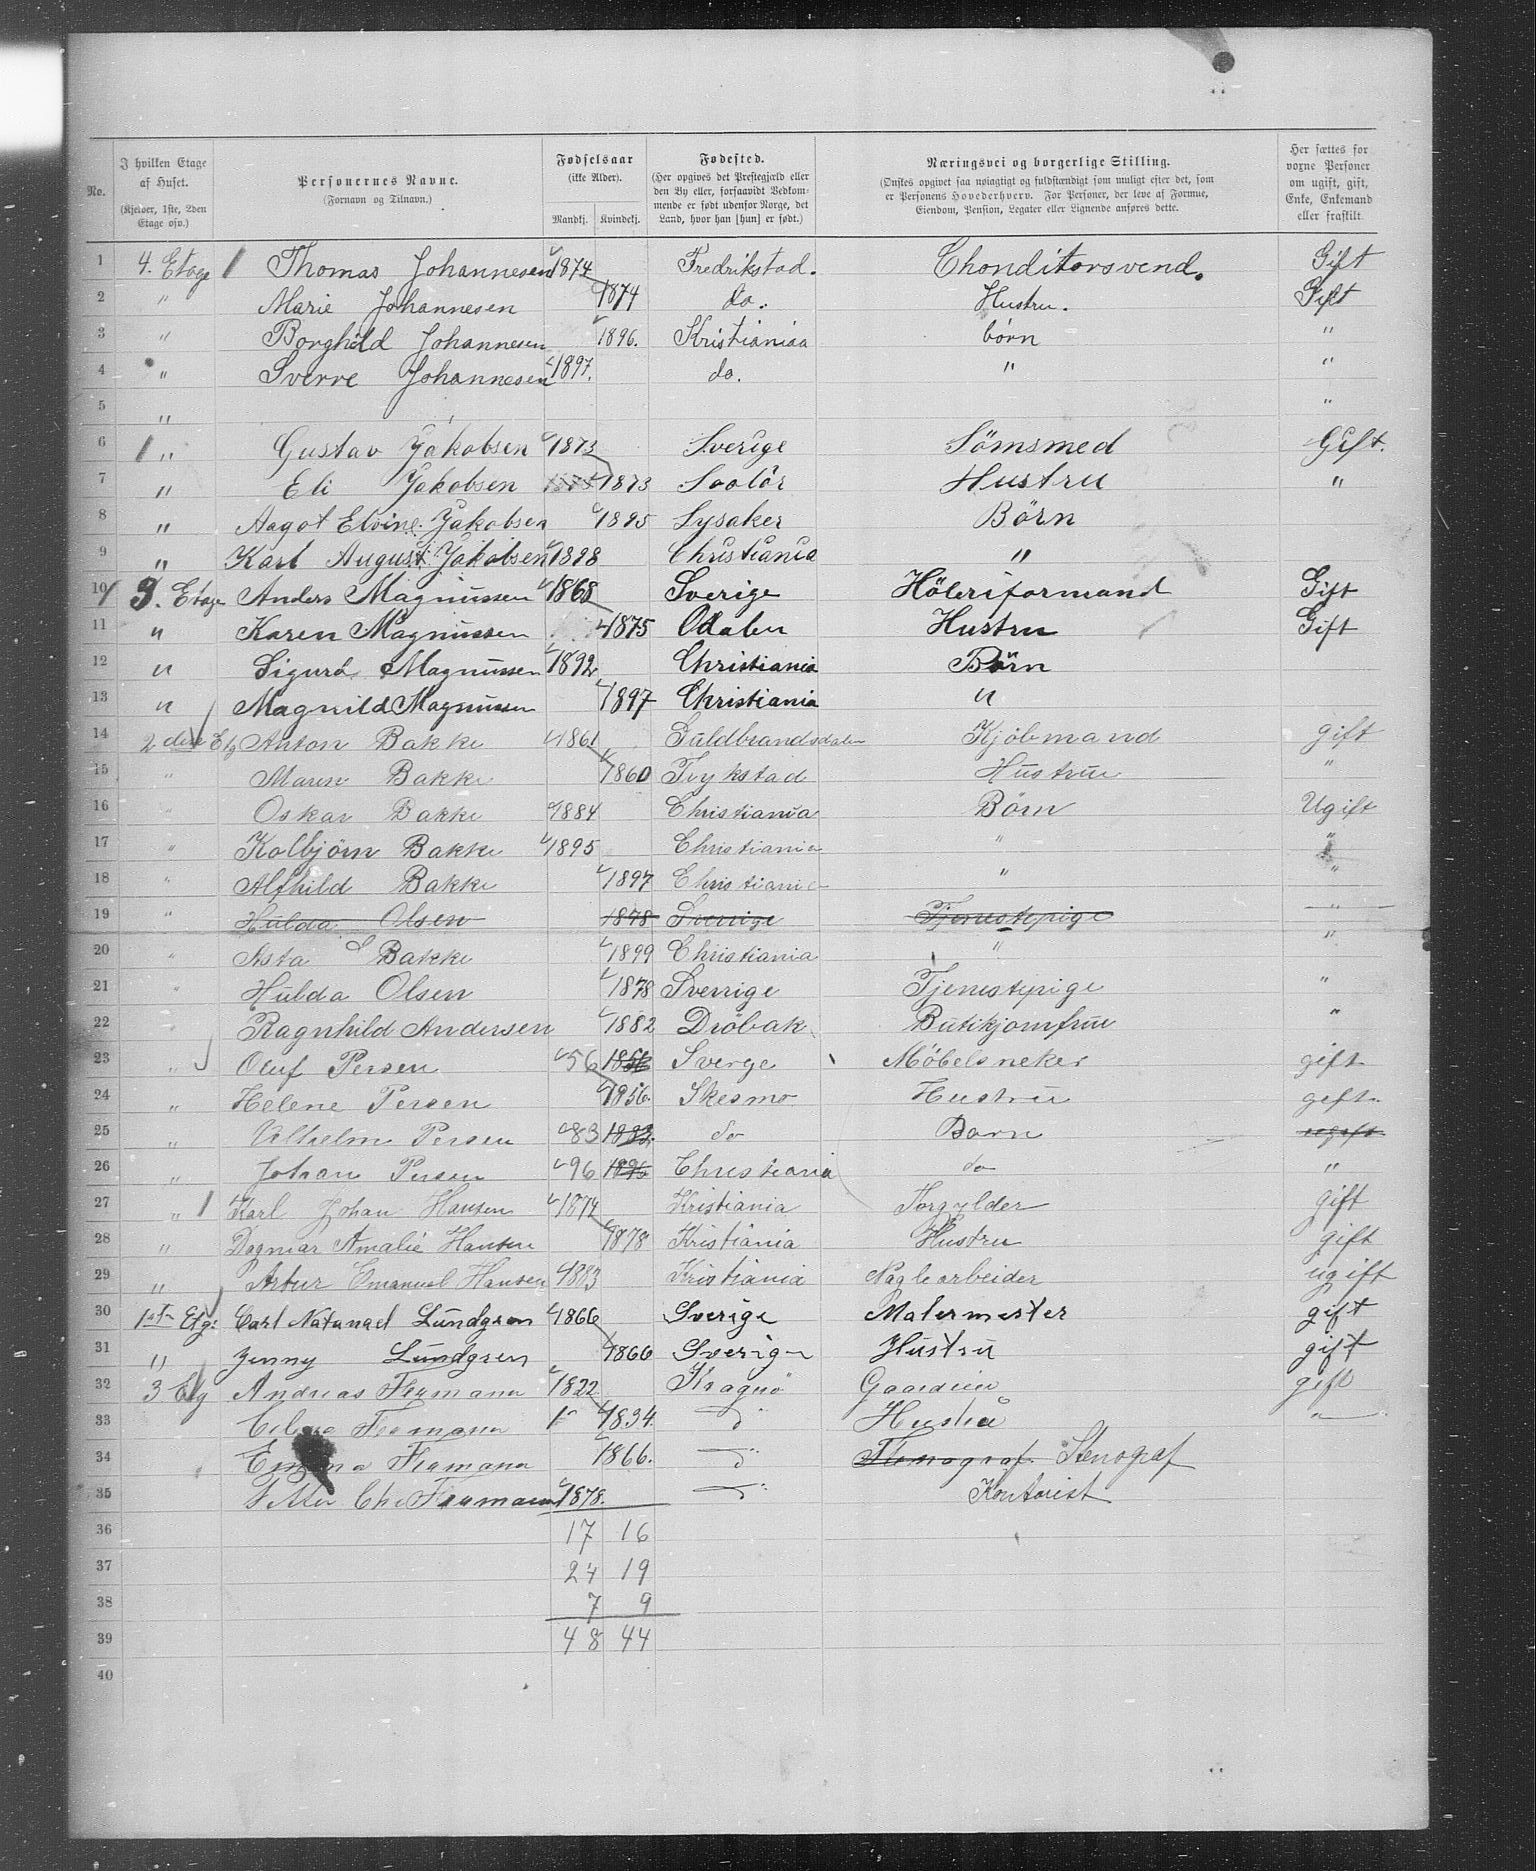 No. I hvilken Etage af Huset. (Kjelder, 1ste, 2den Etage osv.) Personernes Navne. (Fornavn og Tilnavn.) Fødselsaar (ikke Alder). Mandkj. Kvindekj. Fødested. (Her opgives det Prestegjæld eller den By eller, forsaavidt Vedkommende er født udenfor Norge, det Land, hvor han [hun] er født.) Næringsvei og borgerlige Stilling. (Ønskes opgivet saa nøiagtigt og fuldstændigt som muligt efter det, som er Personens Hovederhverv. For Personer, der leve af Formue, Eiendom, Pension, Legater eller Lignende anføres dette. Her sættes for voxne Personer om ugift, gift, Enke, Enkemand eller fraskilt.
1 4. Etage Thomas Johannesen 1874 Fredrikstad. Chonditorsvend. Gift
2 " Marie Johannesen 1874 do. Hustru. Gift
3 " Borghild Johannesen 1896. Kristianiaa börn "
4 " Sverre Johannesen 1897. do. " "
5 " "
6 1 " Gustav Jakobsen 1873 Sverige Sömsmed Gift.
7 " Eli Jakobsen 1873 Soolör Hustru "
8 " Aagot Elvine Jakobsen 1895 Lysaker Börn
9 " Karl August Jakobsen 1898 Christiania "
10 3. Etage Anders Magnussen 1868 Sverige Höleriformand Gift
11 " Karen Magnussen 1875 Odalen Hustru Gift
12 " Sigurd Magnussen 1892 Christiania Börn
13 " Magnild Magnussen 1897 Christiania "
14 2den Etg Anton Bakke 1861 Guldbrandsdalen Kjöbmand gift
15 " Maren Bakke 1860 Trykstad Hustrue "
16 " Oskar Bakke 1884 Christiania Börn Ugift
17 " Kolbjörn Bakke 1895 Christiania " "
18 " Alfhild Bakke 1897 Christiania " "
19 " Hulda Olsen 1878 Sverrige Tjenestepige "
20 " Asta Bakke 1899 Christiania " "
21 " Hulda Olsen 1878 Sverrige Tjenestepige "
22 " Ragnhild Andersen 1882 Dröbak Butikjomfrue "
23 " Oluf Persen 56 1856 Sverge Möbelsneker gift
24 " Helene Persen 1856 Skesmo Hustru geft
25 " Vilhelm Persen 83 1883 do Barn ugeft
26 " Johan Persen 96 1896 Christiania do "
27 " 1 Karl Johan Hansen 1874 Kristiania Forgylder gift
28 " Dagmar Amalie Hansen 1878 Kristiania Hustru gift
29 " Artur Emanuel Hansen 1883 Kristiania Naglearbeider ugift
30 1ste Etg: Carl Natanael Lundgren 1866 Sverige Malermester gift
31 " Jenny Lundgren 1866 Sverige Hustru gift
32 3 Etg Andreas 1822 Kragerö gift
33 1834. d Hustru "
34 Emma 1866. d Stenograf
35 1878. d Kontorist
36 17 16
37 24 19
38 7 9
39 48 44
40